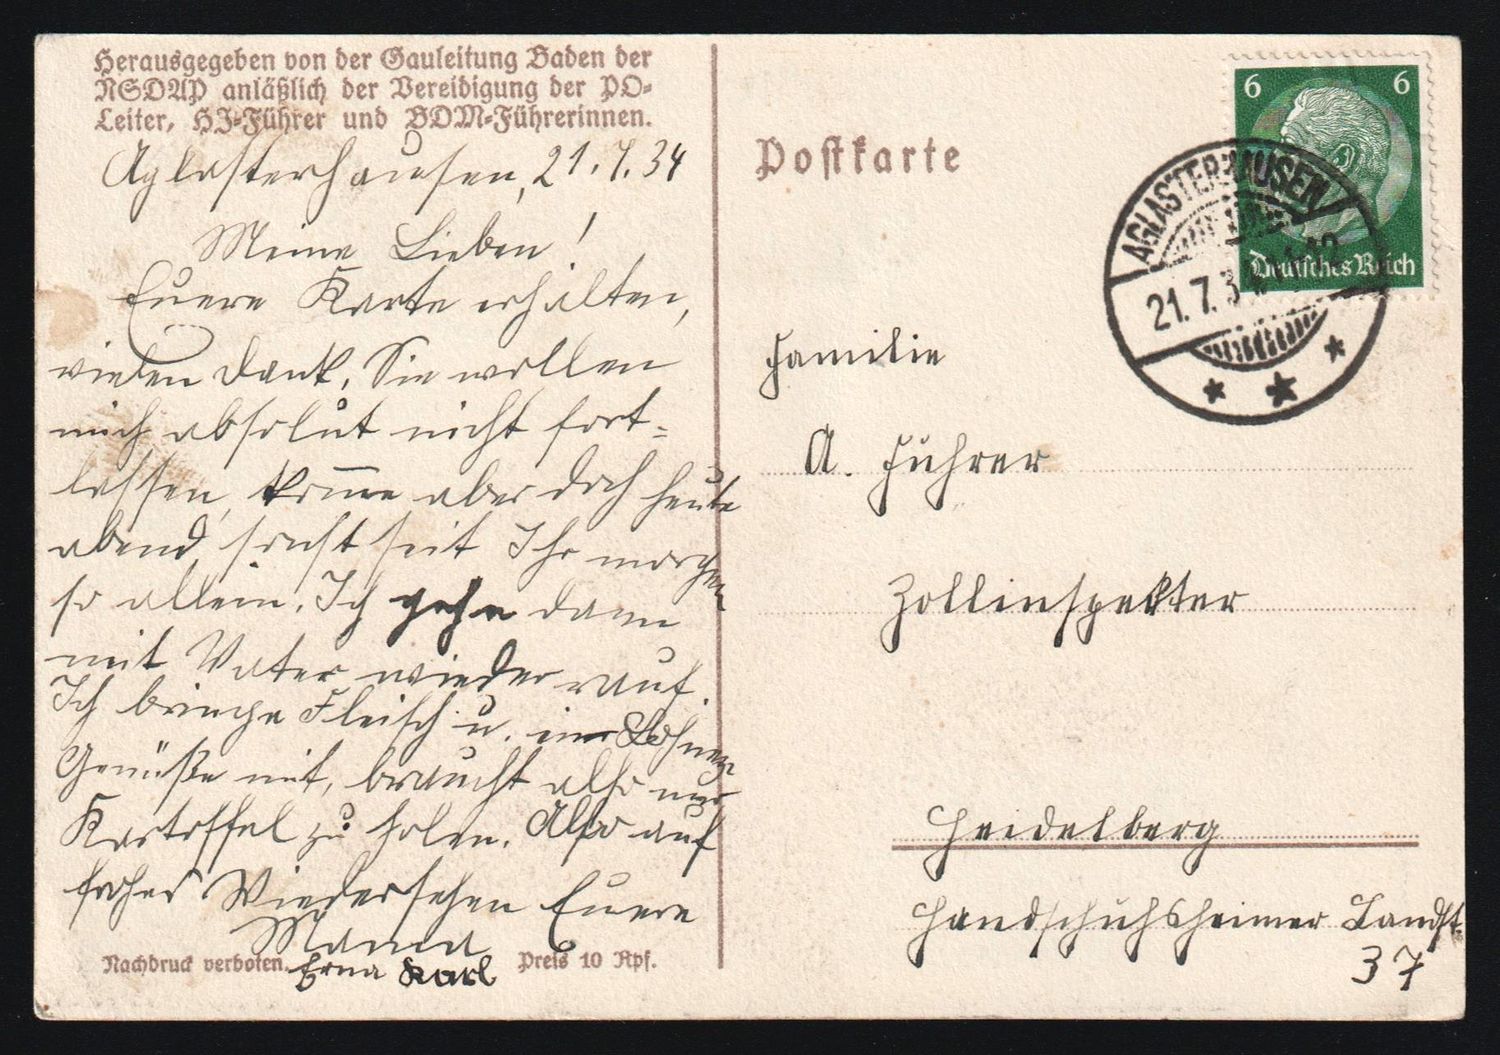 Herausgegeben von der Gauleitung Baden der
NSDAP anläßlich der Vereidigung der PO-
Leiter, HJ-Führer und BDM-Führerinnen.
Aglasterhausen, 21.7.34
Meine Lieben!
Euere Karte erhalten,
vielen Dank. Sie wollen
mich absolut nicht fort-
lassen, komme aber doch heute
abend, sonst seit Ihr morgen
so allein. Ich gehe dann
mit Vater wieder rauf.
Ich bringe Fleisch u.
Gemüße mit, braucht also nur
Kartoffel zu holen. Also auf
frohes Wiedersehen Euere
Mama
Erna Karl
Nachdruck verboten. Preis 10 Rpf.
Postkarte
6 6
Deutsches Reich
AGLASTERHAUSEN
21.7.3
Familie
A. Führer
Zollinspektor
Heidelberg
Handschuhsheimer Landst.
37